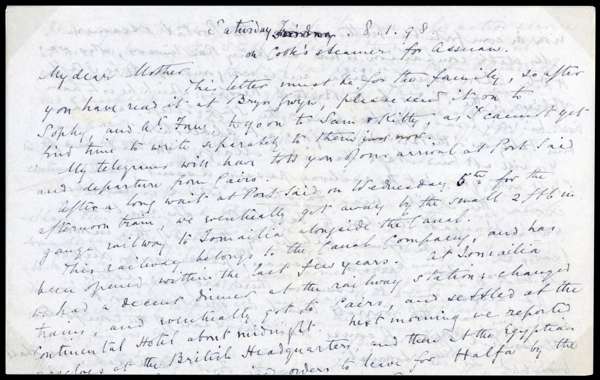 Saturday Friday. 8.1.98
on Cook's steamer for Assuan.
My dear Mother
This letter must be for the family, so after
you have read it at Bryn Gwyn, please send it on to
Sophy, and to go on to Sam & Kitty, as I cannot get
time to write separately to them just now.
My telegrams will have told you of our arrival at Port Said
and departure from Cairo.
After a long wait at Port Said on Wednesday 5th for the
afternoon train, we eventually got away by the small 2ft6in
gauge railway to Ismailia alongside the Canal.
This railway belongs to the Canal Company, and has
been opened within the last few years. At Ismailia
we had a decent dinner at the railway station, changed
trains, and eventually got to Cairo, and settled at the
Continental Hotel about midnight. Next morning we reported
ourselves at the British Headquarters, and then at the Egyptian
orders to leave for Halfa by the